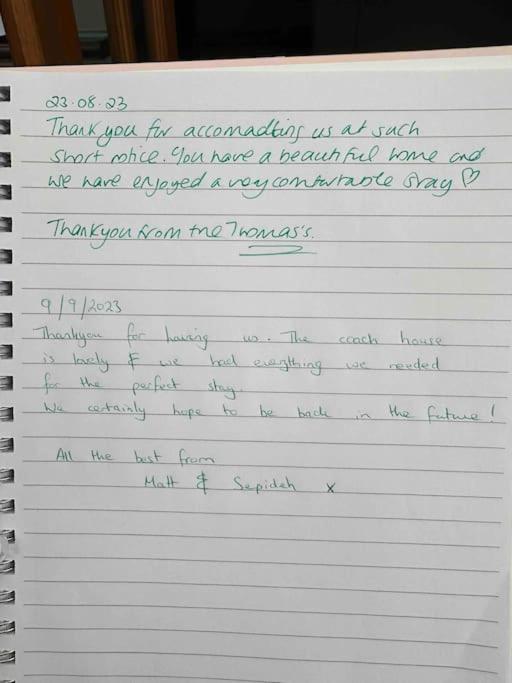 23.08.23
Thank you for accomadting us at such
short notice. You have a beautiful home and
we have enjoyed a very comfortable stay ♡
Thankyou from the Thomas's.
9/9/2023
Thankyou for having us. The coach house
is lovely & we had everything we needed
for the perfect stay.
We certainly hope to be back in the future!
All the best from
Matt & Sepideh x